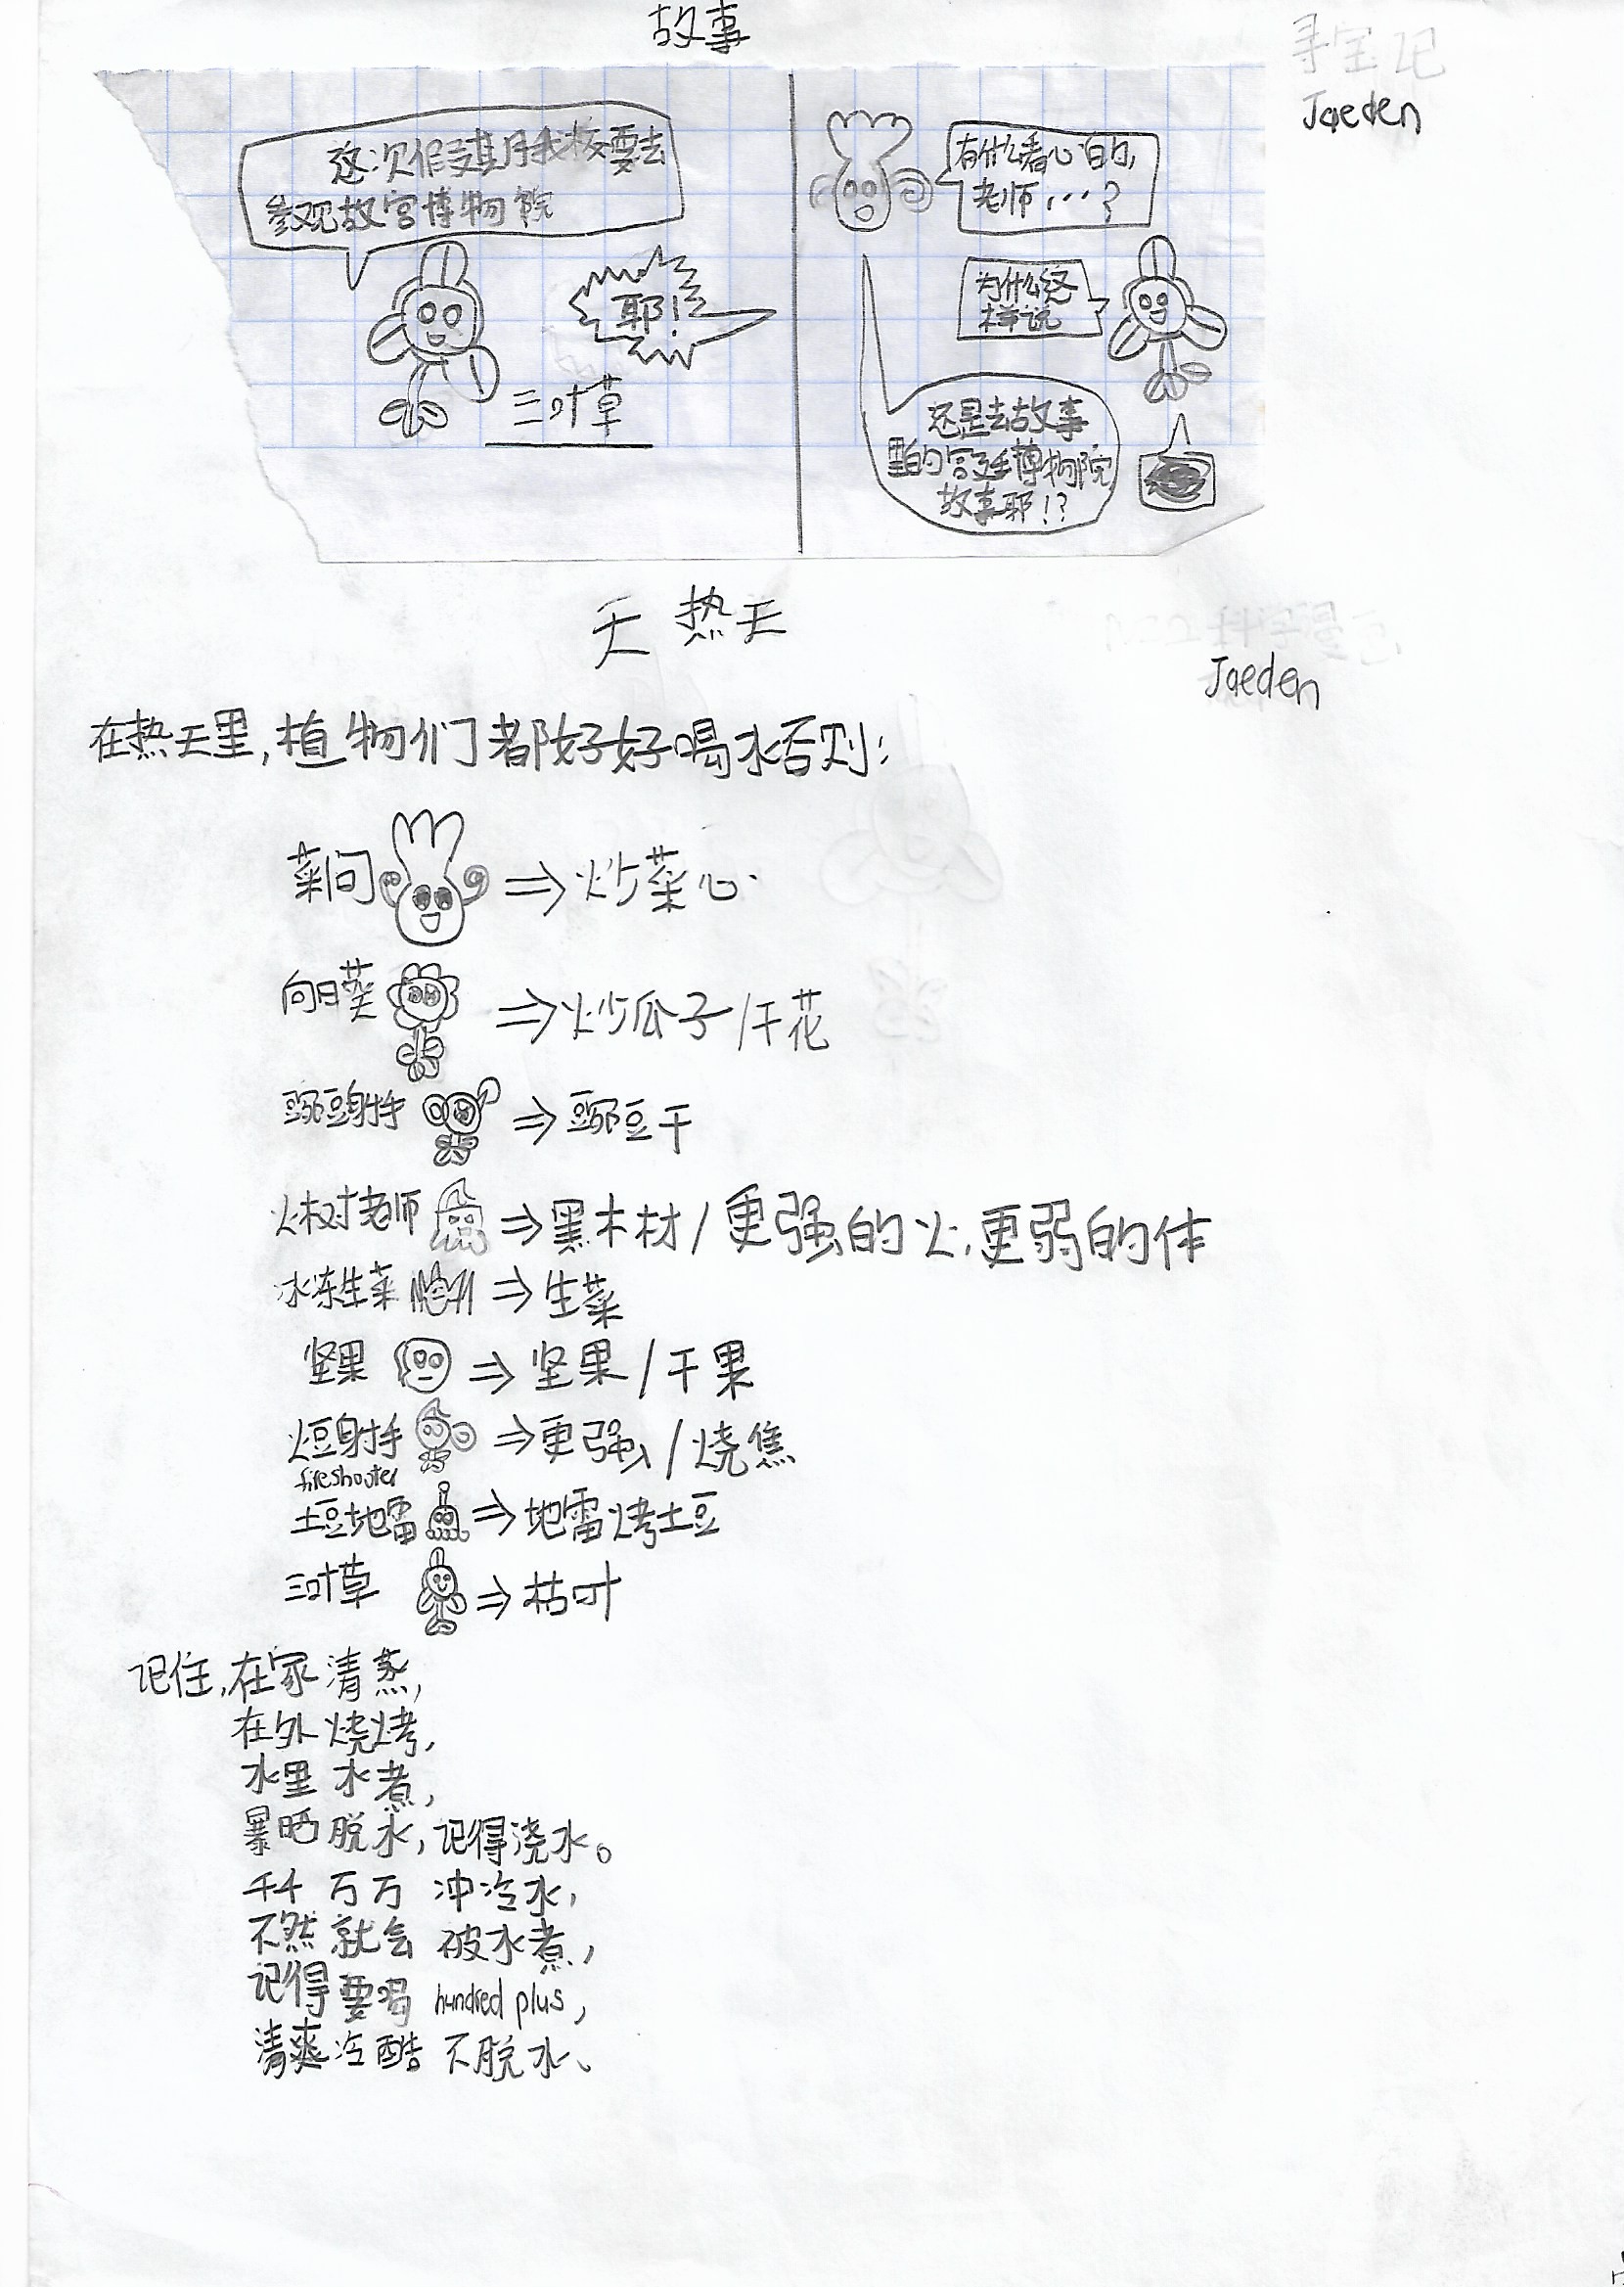 故事
寻宝记
Jaeden
这次假期我校要去
参观故宫博物院
耶!
三叶草
有什么
老师...?
为什么这
样说
还是去故事
里的宫廷博物院
故事耶!?
天 热天
Jaeden
在热天里,植物们都好好喝水否则:
菜问 ⇒ 炒菜心
向日葵 ⇒ 炒瓜子/干花
豌豆射手 ⇒ 豌豆干
火树老师 ⇒ 黑木材/更强的火,更弱的体
冰冻生菜 ⇒ 生菜
坚果 ⇒ 坚果/干果
火豆射手 ⇒ 更强/烧焦
fireshooter
土豆地雷 ⇒ 地雷烤土豆
三叶草 ⇒ 枯叶
记住,在家清蒸,
在外烧烤,
水里水煮,
暴晒脱水,记得浇水。
千千万万 冲冷水,
不然就会 被水煮,
记得要喝 hundred plus,
清爽冷酷 不脱水、